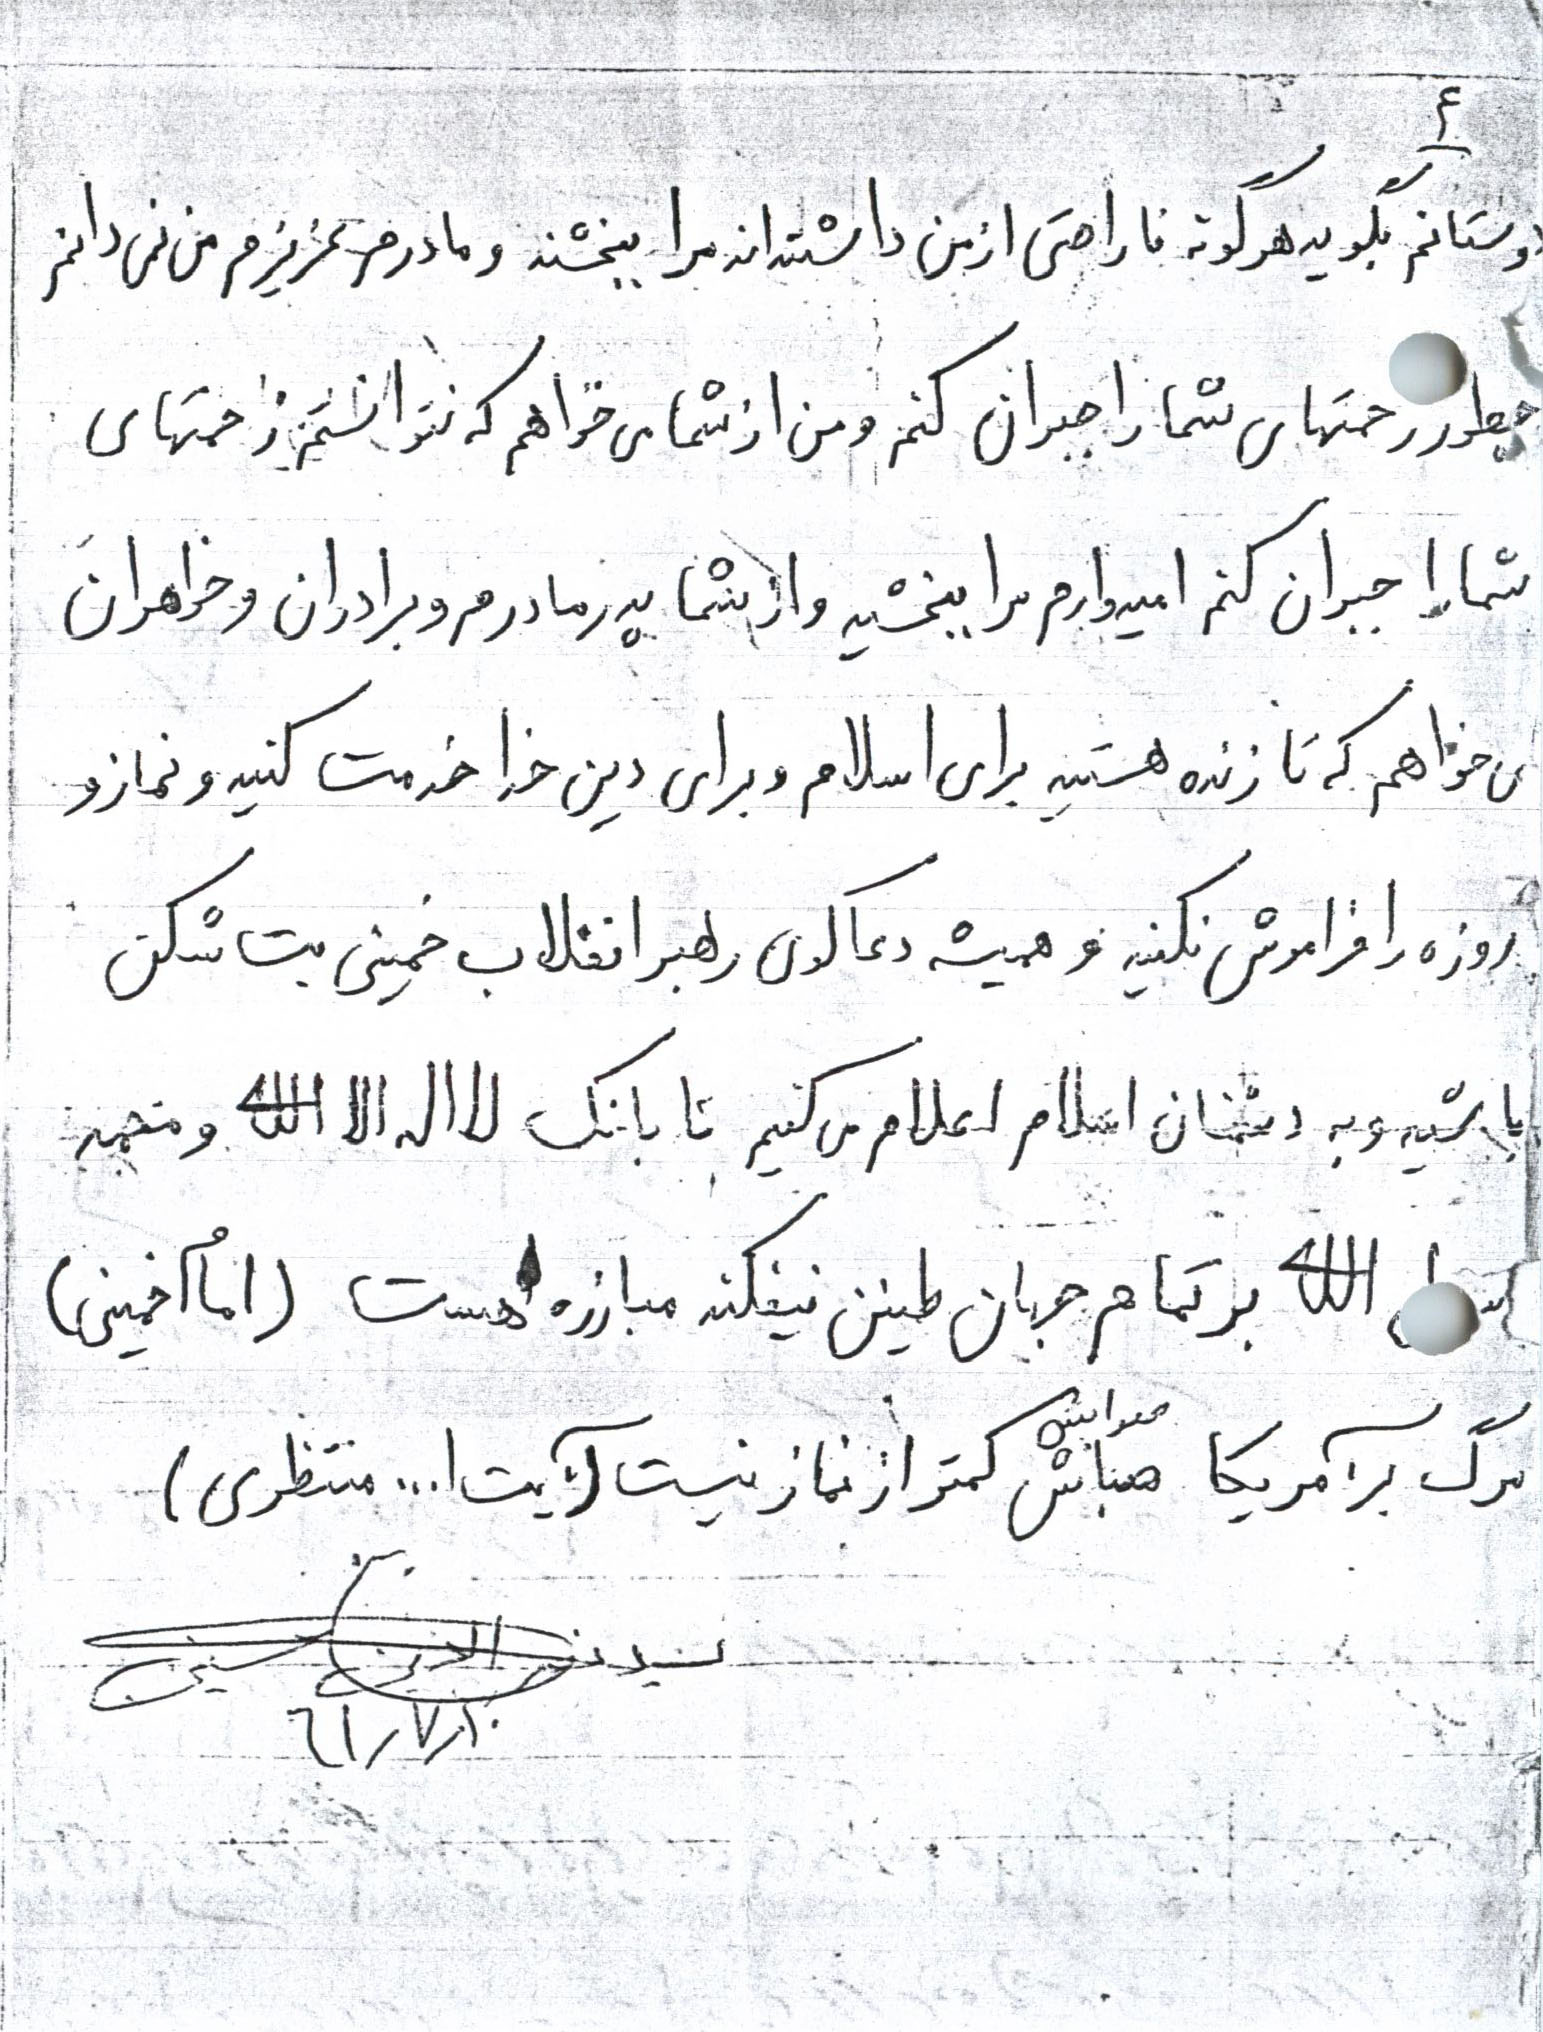 ۴
دوستانم بگوید هرگونه ناراحتی از من داشته‌اند مرا ببخشند و مادرم عزیزم من نمی دانم
چطور زحمتهای شما را جبران کنم و من از شما می خواهم که نتوانستم زحمتهای
شما را جبران کنم امیدوارم مرا ببخشید و از شما پدر مادرم و برادران و خواهران
می خواهم که تا زنده هستید برای اسلام و برای دین خدا خدمت کنید و نماز و
روزه را فراموش نکنید و همیشه دعاگوی رهبر انقلاب خمینی بت شکن
باشید و به دشمنان اسلام اعلام می کنیم تا بانگ لا اله الا الله و محمد
رسول الله بر تمام جهان طنین نیفکند مبارزه هست (امام خمینی)
مرگ بر آمریکا کمتر از نماز نیست (آیت ا... منتظری)
سید الدین حسینی
۶۱/۷/۱۰